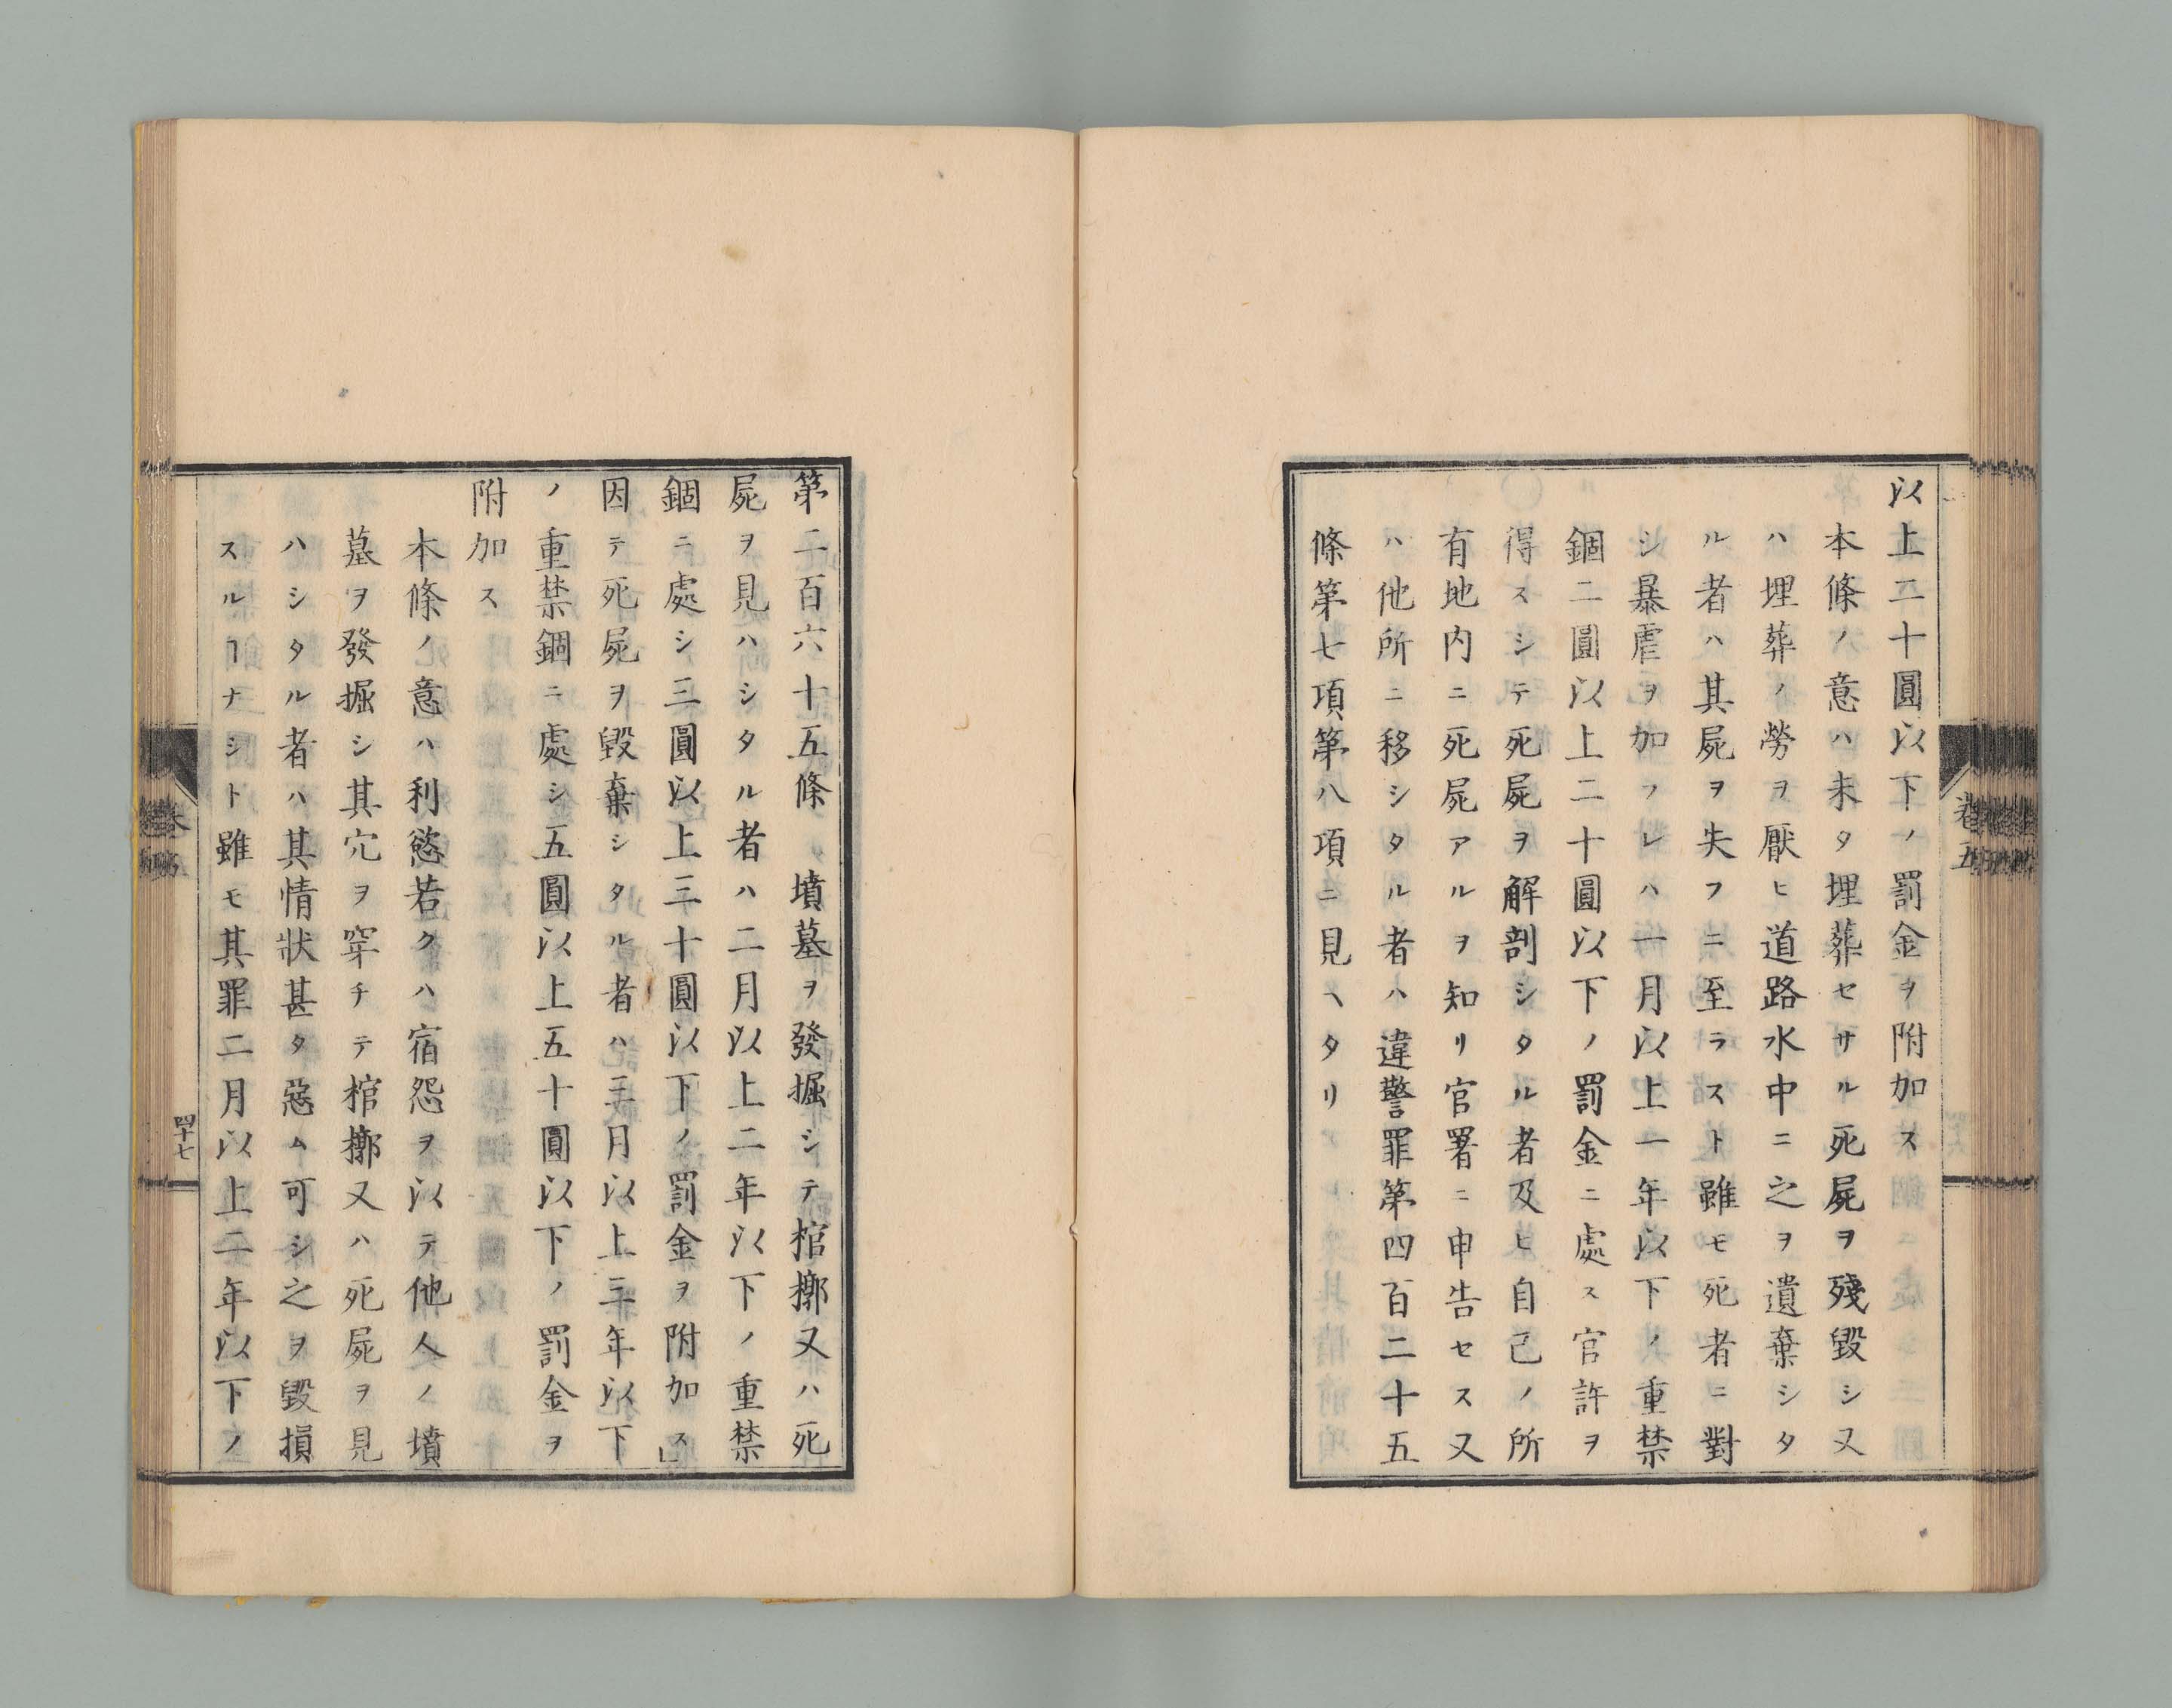 以上二十圓以下ノ罰金ヲ附加ス
本條ノ意ハ未タ埋葬セサル死屍ヲ殘毀シ又
ハ埋葬ノ勞ヲ厭ヒ道路水中ニ之ヲ遺棄シタ
ル者ハ其屍ヲ失フニ至ラスト雖モ死者ニ對
シ暴虐ヲ加フレハ一月以上一年以下ノ重禁
錮二圓以上二十圓以下ノ罰金ニ處ス官許ヲ
得スシテ死屍ヲ解剖シタル者及ヒ自己ノ所
有地内ニ死屍アルヲ知リ官署ニ申告セス又
ハ他所ニ移シタル者ハ違警罪第四百二十五
條第七項第八項ニ見ヘタリ
卷五
第二百六十五條 墳墓ヲ發掘シテ棺槨又ハ死
屍ヲ見ハシタル者ハ二月以上二年以下ノ重禁
錮ニ處シ三圓以上三十圓以下ノ罰金ヲ附加ス」
因テ死屍ヲ毀棄シタル者ハ三月以上三年以下
ノ重禁錮ニ處シ五圓以上五十圓以下ノ罰金ヲ
附加ス
本條ノ意ハ利慾若クハ宿怨ヲ以テ他人ノ墳
墓ヲ發掘シ其穴ヲ穿チテ棺槨又ハ死屍ヲ見
ハシタル者ハ其情狀甚タ惡ム可シ之ヲ毀損
スルヿナシト雖モ其罪二月以上二年以下ノ
四十七